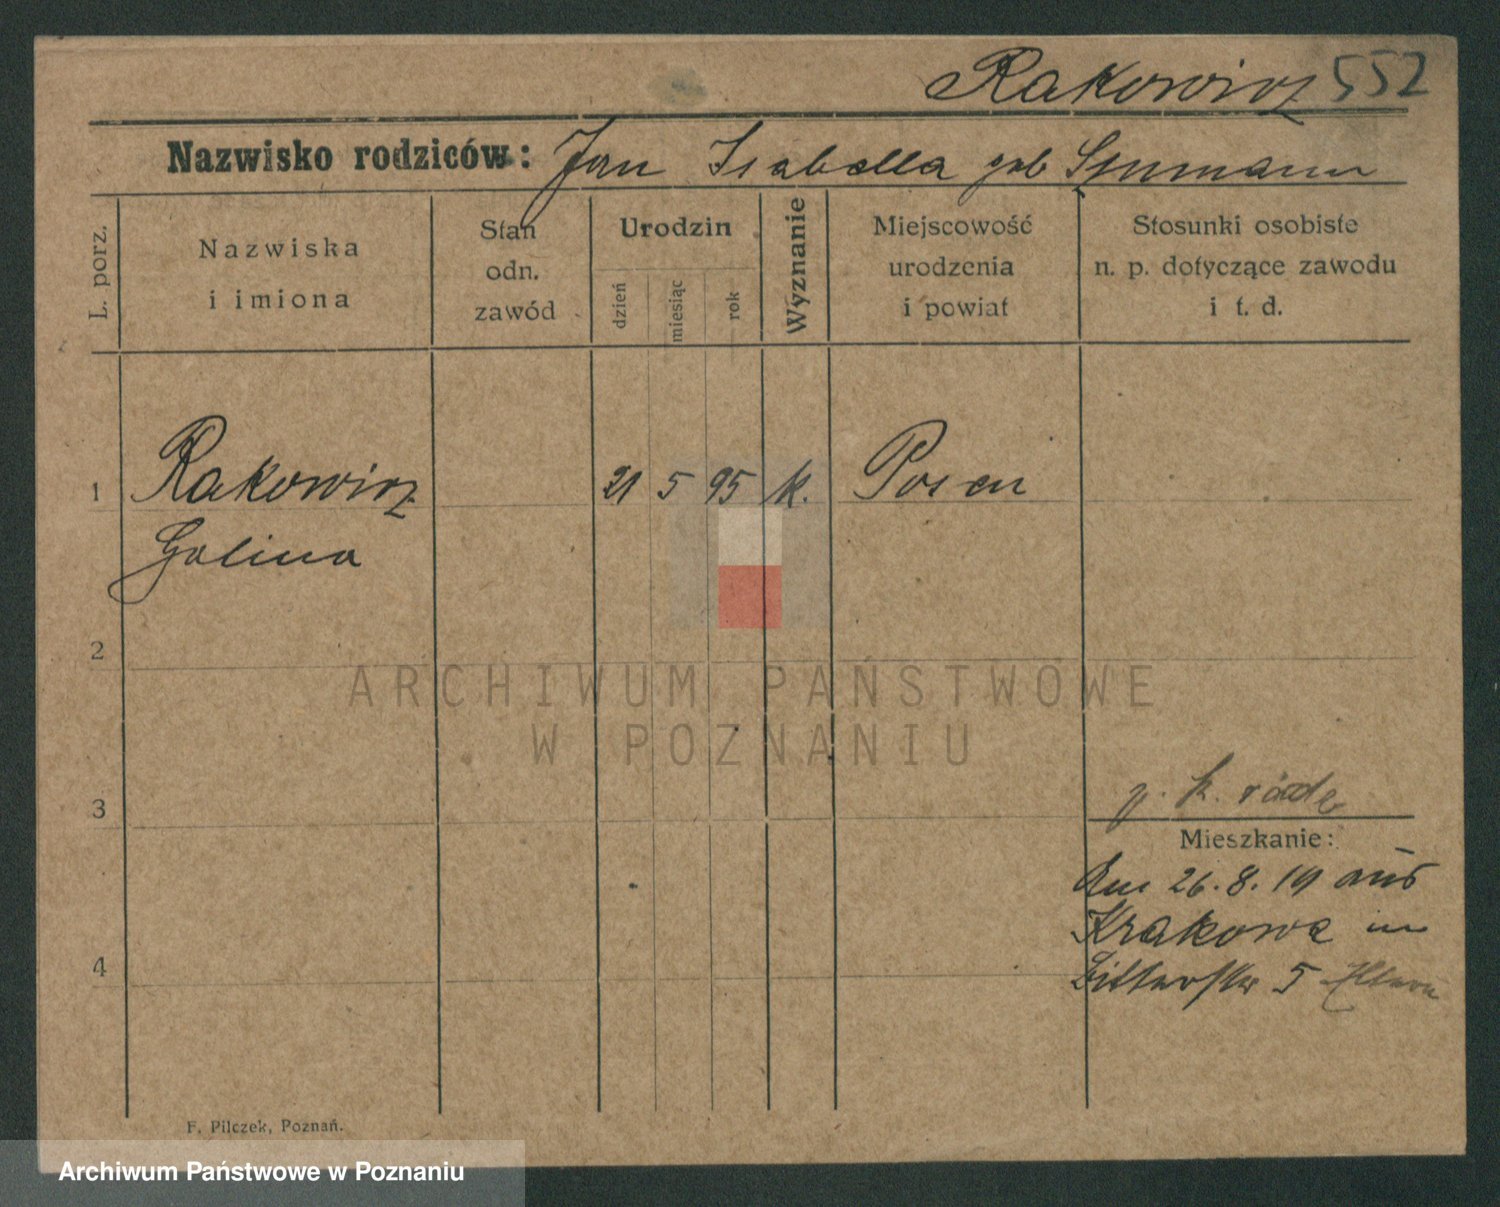 Rakowicz 552
Nazwisko rodziców: Jan Isabella geb Szumann
L. porz.
Nazwiska
i imiona
Stan
odn.
zawód
Urodzin
dzień
miesiąc
rok
Wyznanie
Miejscowość
urodzenia
i powiat
Stosunki osobiste
n. p. dotyczące zawodu
i t. d.
1 Rakowicz 21 5 95 k. Posen
Halina
2
ARCHIWUM PAŃSTWOWE
W POZNANIU
3
Mieszkanie:
26.8.19 aus
Krakowa in
4
Ritterstr 5 Eltern
F. Pilczek, Poznań.
Archiwum Państwowe w Poznaniu